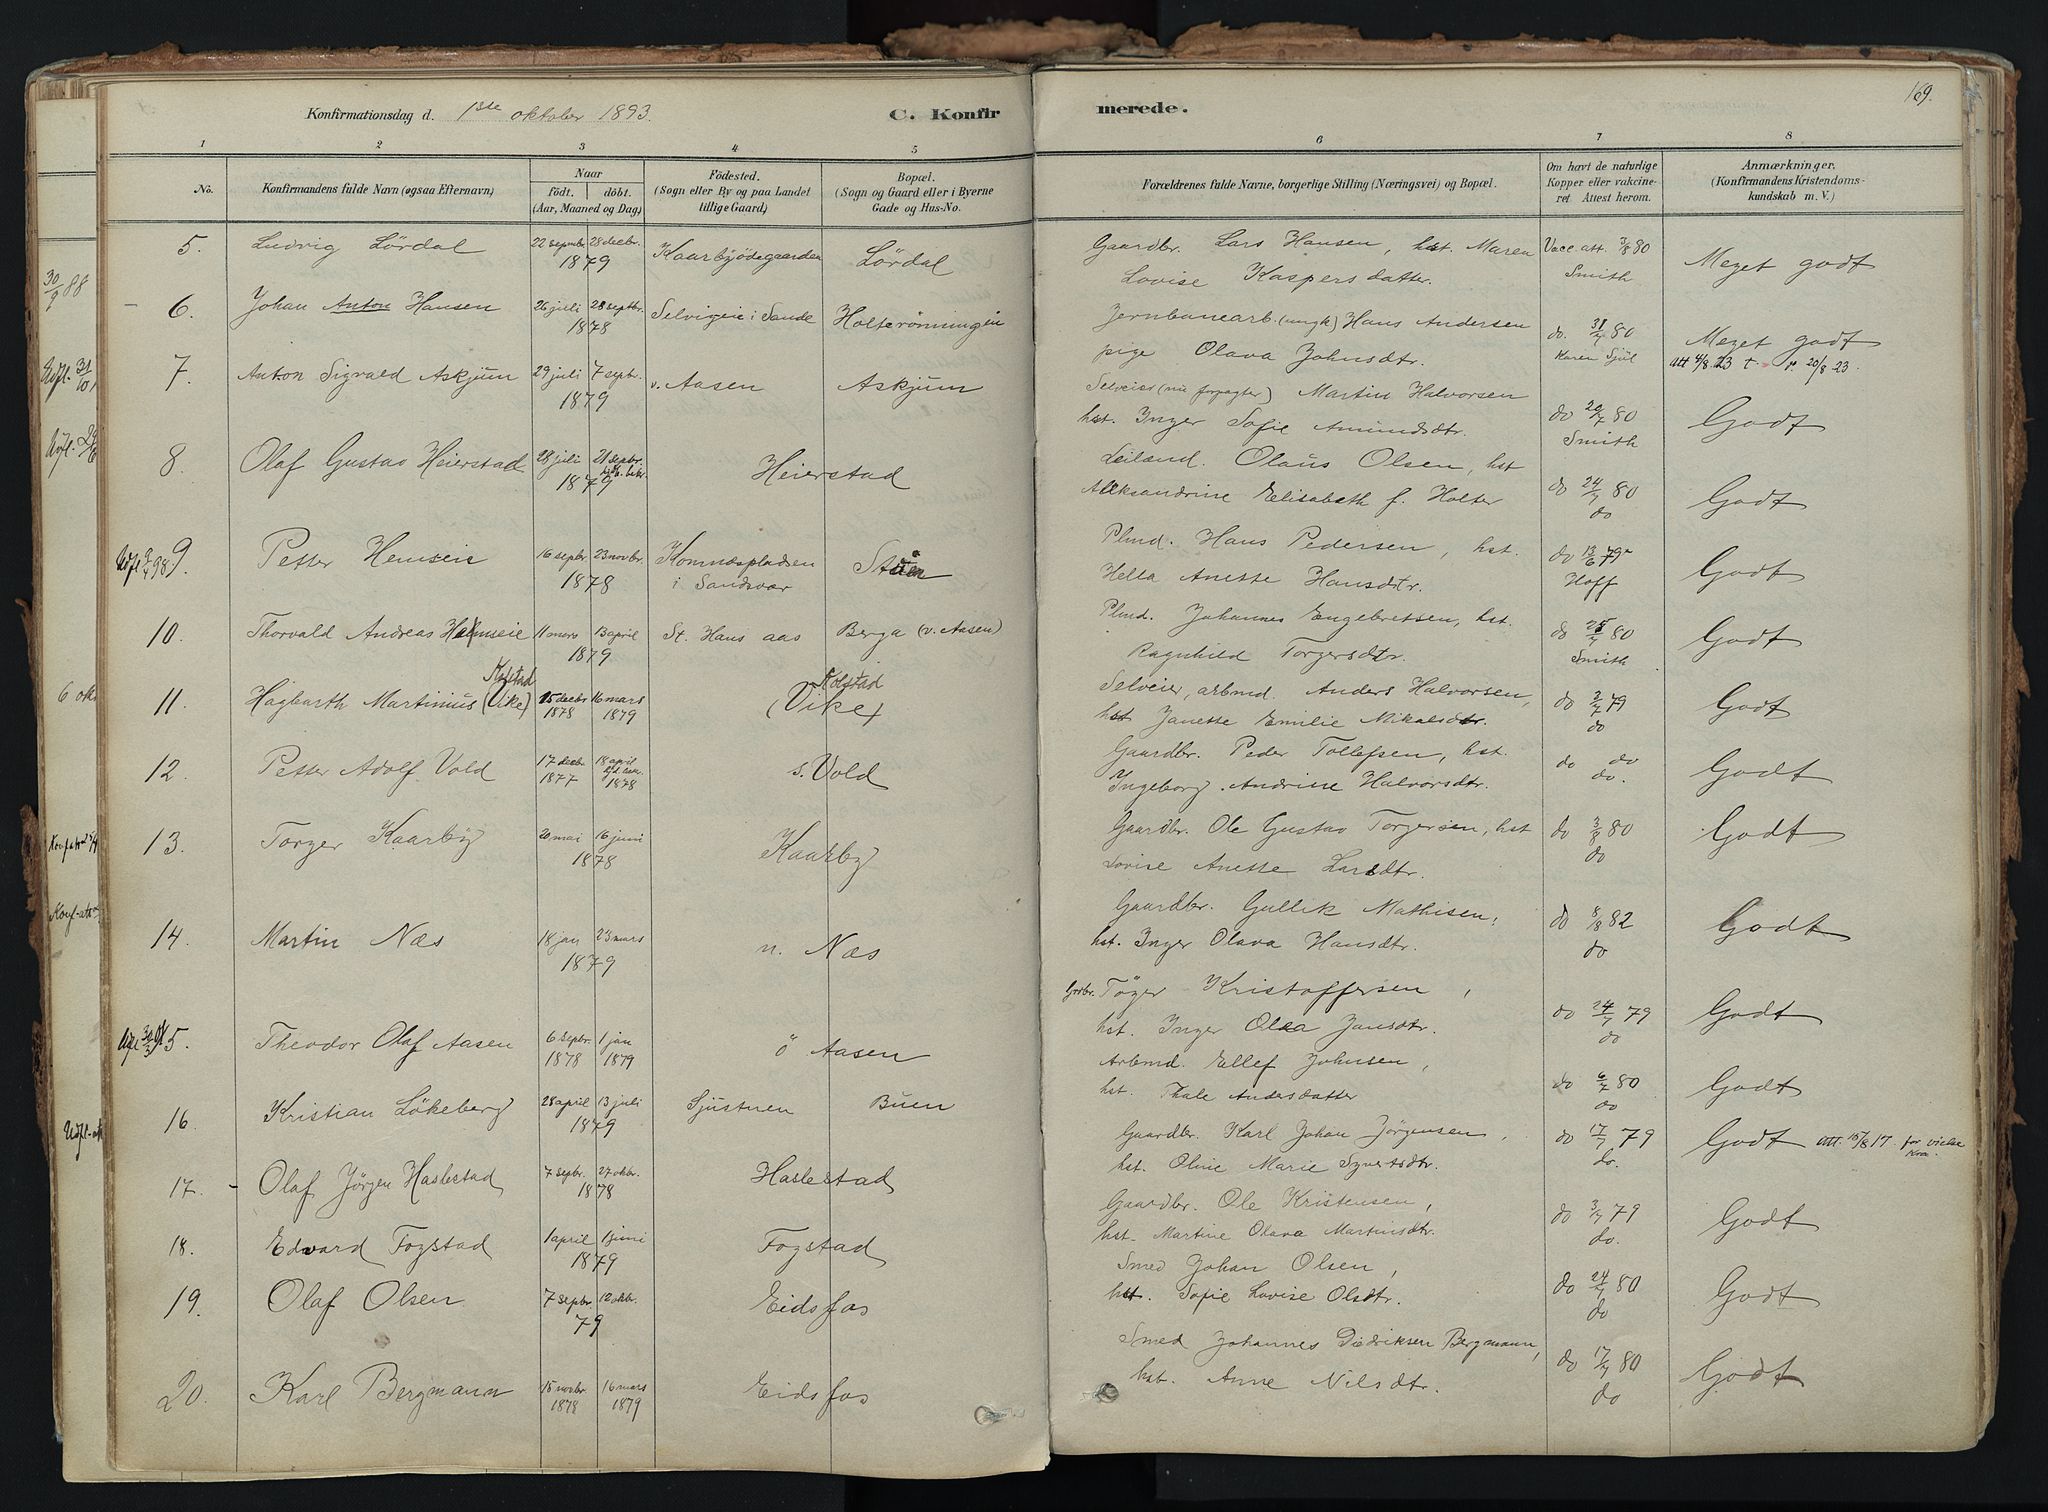 169.
Konfirmationsdag d. 1ste oktober 1893. C. Konfir merede.
1 2 3 4 5 6 7 8
No. Konfirmandens fulde Navn (ogsaa Efternavn) Naar født. døbt. (Aar, Maaned og Dag) Fødested. (Sogn eller By og paa Landet tillige Gaard) Bopæl. (Sogn og Gaard eller i Byerne Gade og Hus-No. Forældrenes fulde Navne, borgerlige Stilling (Næringsvei) og Bopæl. Om havt de naturlige Kopper eller vakcineret. Attest herom. Anmærkninger. (Konfirmandens Kristendomskundskab m. V.)
5. Ludvig Lördal 22 septembr 28 decbr. 1879 Kaarbyödegaarden Lördal Gaardbr. Lars Hansen, hst. Maren Vacc. att. 3/8 80 Meget godt
Lovise Kaspersdatter. Smith
30/9 88
6. Johan Anton Hansen 26 juli 28 septbr. 1878 Selvigeie i Sande Holterönningen Jernbanearb. (ungk) Hans Andersen do. 31/7 80 Meget godt
pige Olava Johnsdtr. Att 4/8 23 20/8 23.
7. Anton Sigvald Askjum 29 juli 7 septbr. 1879 v. Aasen Askjum Selveier (nu forpagter) Martin Halvorsen do 20/7 80 Godt
hst. Inger Sofie Amundsdtr. Smith
8. Olaf Gustav Heierstad 28 juli 21 septbr. 1879 Heierstad Leilænd. Olaus Olsen, hst do 24/7 80 Godt
Aleksandrine Elisabeth f. Holter do
9. Petter Hemseie 16 septbr 23 novbr. 1878 Komnæspladsen i Sandsvær Stuen Plmd. Hans Pedersen, hst. do 13/6 79 Godt
Hella Anette Hansdtr. Hoff
10. Thorvald Andreas Hemseie 11 mars 13 april 1879 St. Hans aas Berga (v. Aasen) Plmd. Johannes Engebretsen, hst. do 25/7 80 Godt
Ragnhild Torgersdtr. Smith
11. Hagbarth Martinius (Vike) Kolstad 15 decbr 1878 16 mars 1879 (Vike) Kolstad Selveier, arbmd. Anders Halvorsen, do 2/7 79 Godt
hst Janette Emilie Mikalsdtr. do
12. Petter Adolf Vold 17 decbr 1877 18 april 1878 s. Vold Gaardbr. Peder Tollefsen, hst. do do Godt
Ingeborg Andrine Halvorsdtr. do.
13. Torger Kaarby 20 mai 16 juni 1878 Kaarby Gaardbr. Ole Gustav Torgersen, hst do 3/8 80 Godt
Lovise Anette Larsdtr. do
14. Martin Næs 18 jan 23 mars 1879 n. Næs Gaardbr. Gullik Mathisen, do 8/8 82 Godt
hst. Inger Olava Hansdtr. do
15. Theodor Olaf Aasen 6 septbr. 1878 1 jan 1879 ö Aasen Grdbr. Töger Kristoffersen, do 24/7 79 Godt
hst. Inger Olea Jansdtr. do
16. Kristian Lökeberg 28 april 13 juli 1879 Sjustuen Buen Arbmd. Ellef Johnsen, do 6/7 80 Godt
hst. Thale Andersdatter do
17. Olaf Jörgen Haslestad 7 septbr. 27 oktbr. 1878 Haslestad Gaardbr. Karl Johan Jörgensen, do 17/7 79 Godt Att. 15/8 17. for vielse
hst. Oline Marie Syvertsdtr. do.
18. Edvard Fogstad 1 april 1 juni 1879 Fogstad Gaardbr. Ole Kristensen, do 3/7 79 Godt
hst. Martine Olava Martinsdtr. do.
19. Olaf Olsen 7 septbr 12 oktbr. 79 Eidsfos Smed Johan Olsen, do 24/7 80 Godt
hst. Sofie Lovise Olsdtr. do
20. Karl Bergmann 15 novbr. 1878 16 mars 1879 Eidsfos Smed Johannes Diedriksen Bergmann, do 17/7 80 Godt
hst. Anne Nilsdtr. do